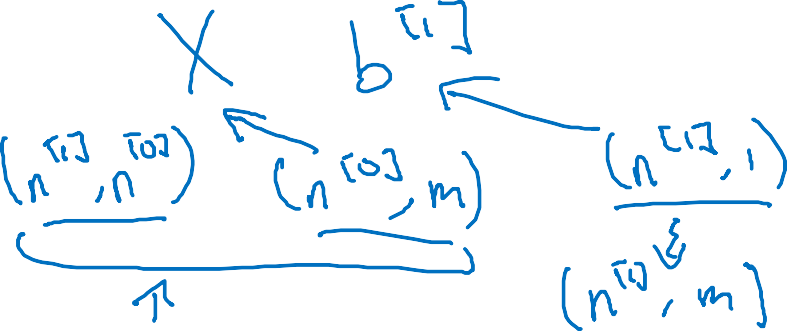 X b^[1]
(n^[1], n^[0]) (n^[0], m) (n^[1], 1)
(n^[1], m]